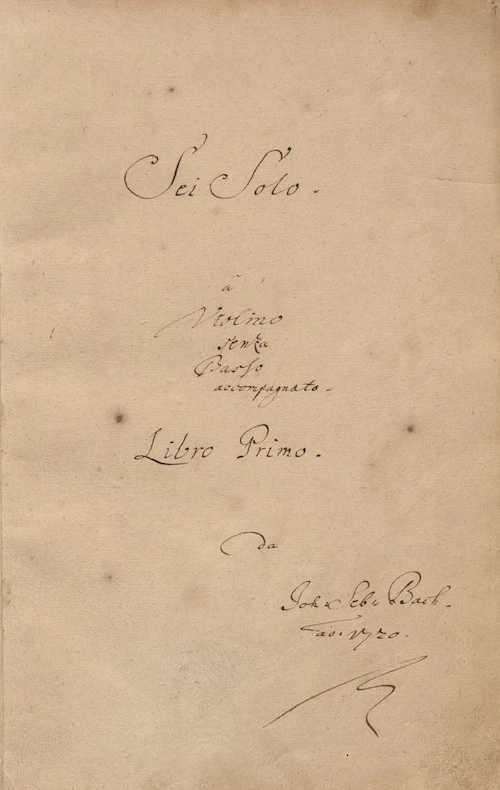 Sei Solo.
â
Violino
senza
Basso
accompagnato.
Libro Primo.
da
Joh: Seb: Bach.
aõ. 1720.